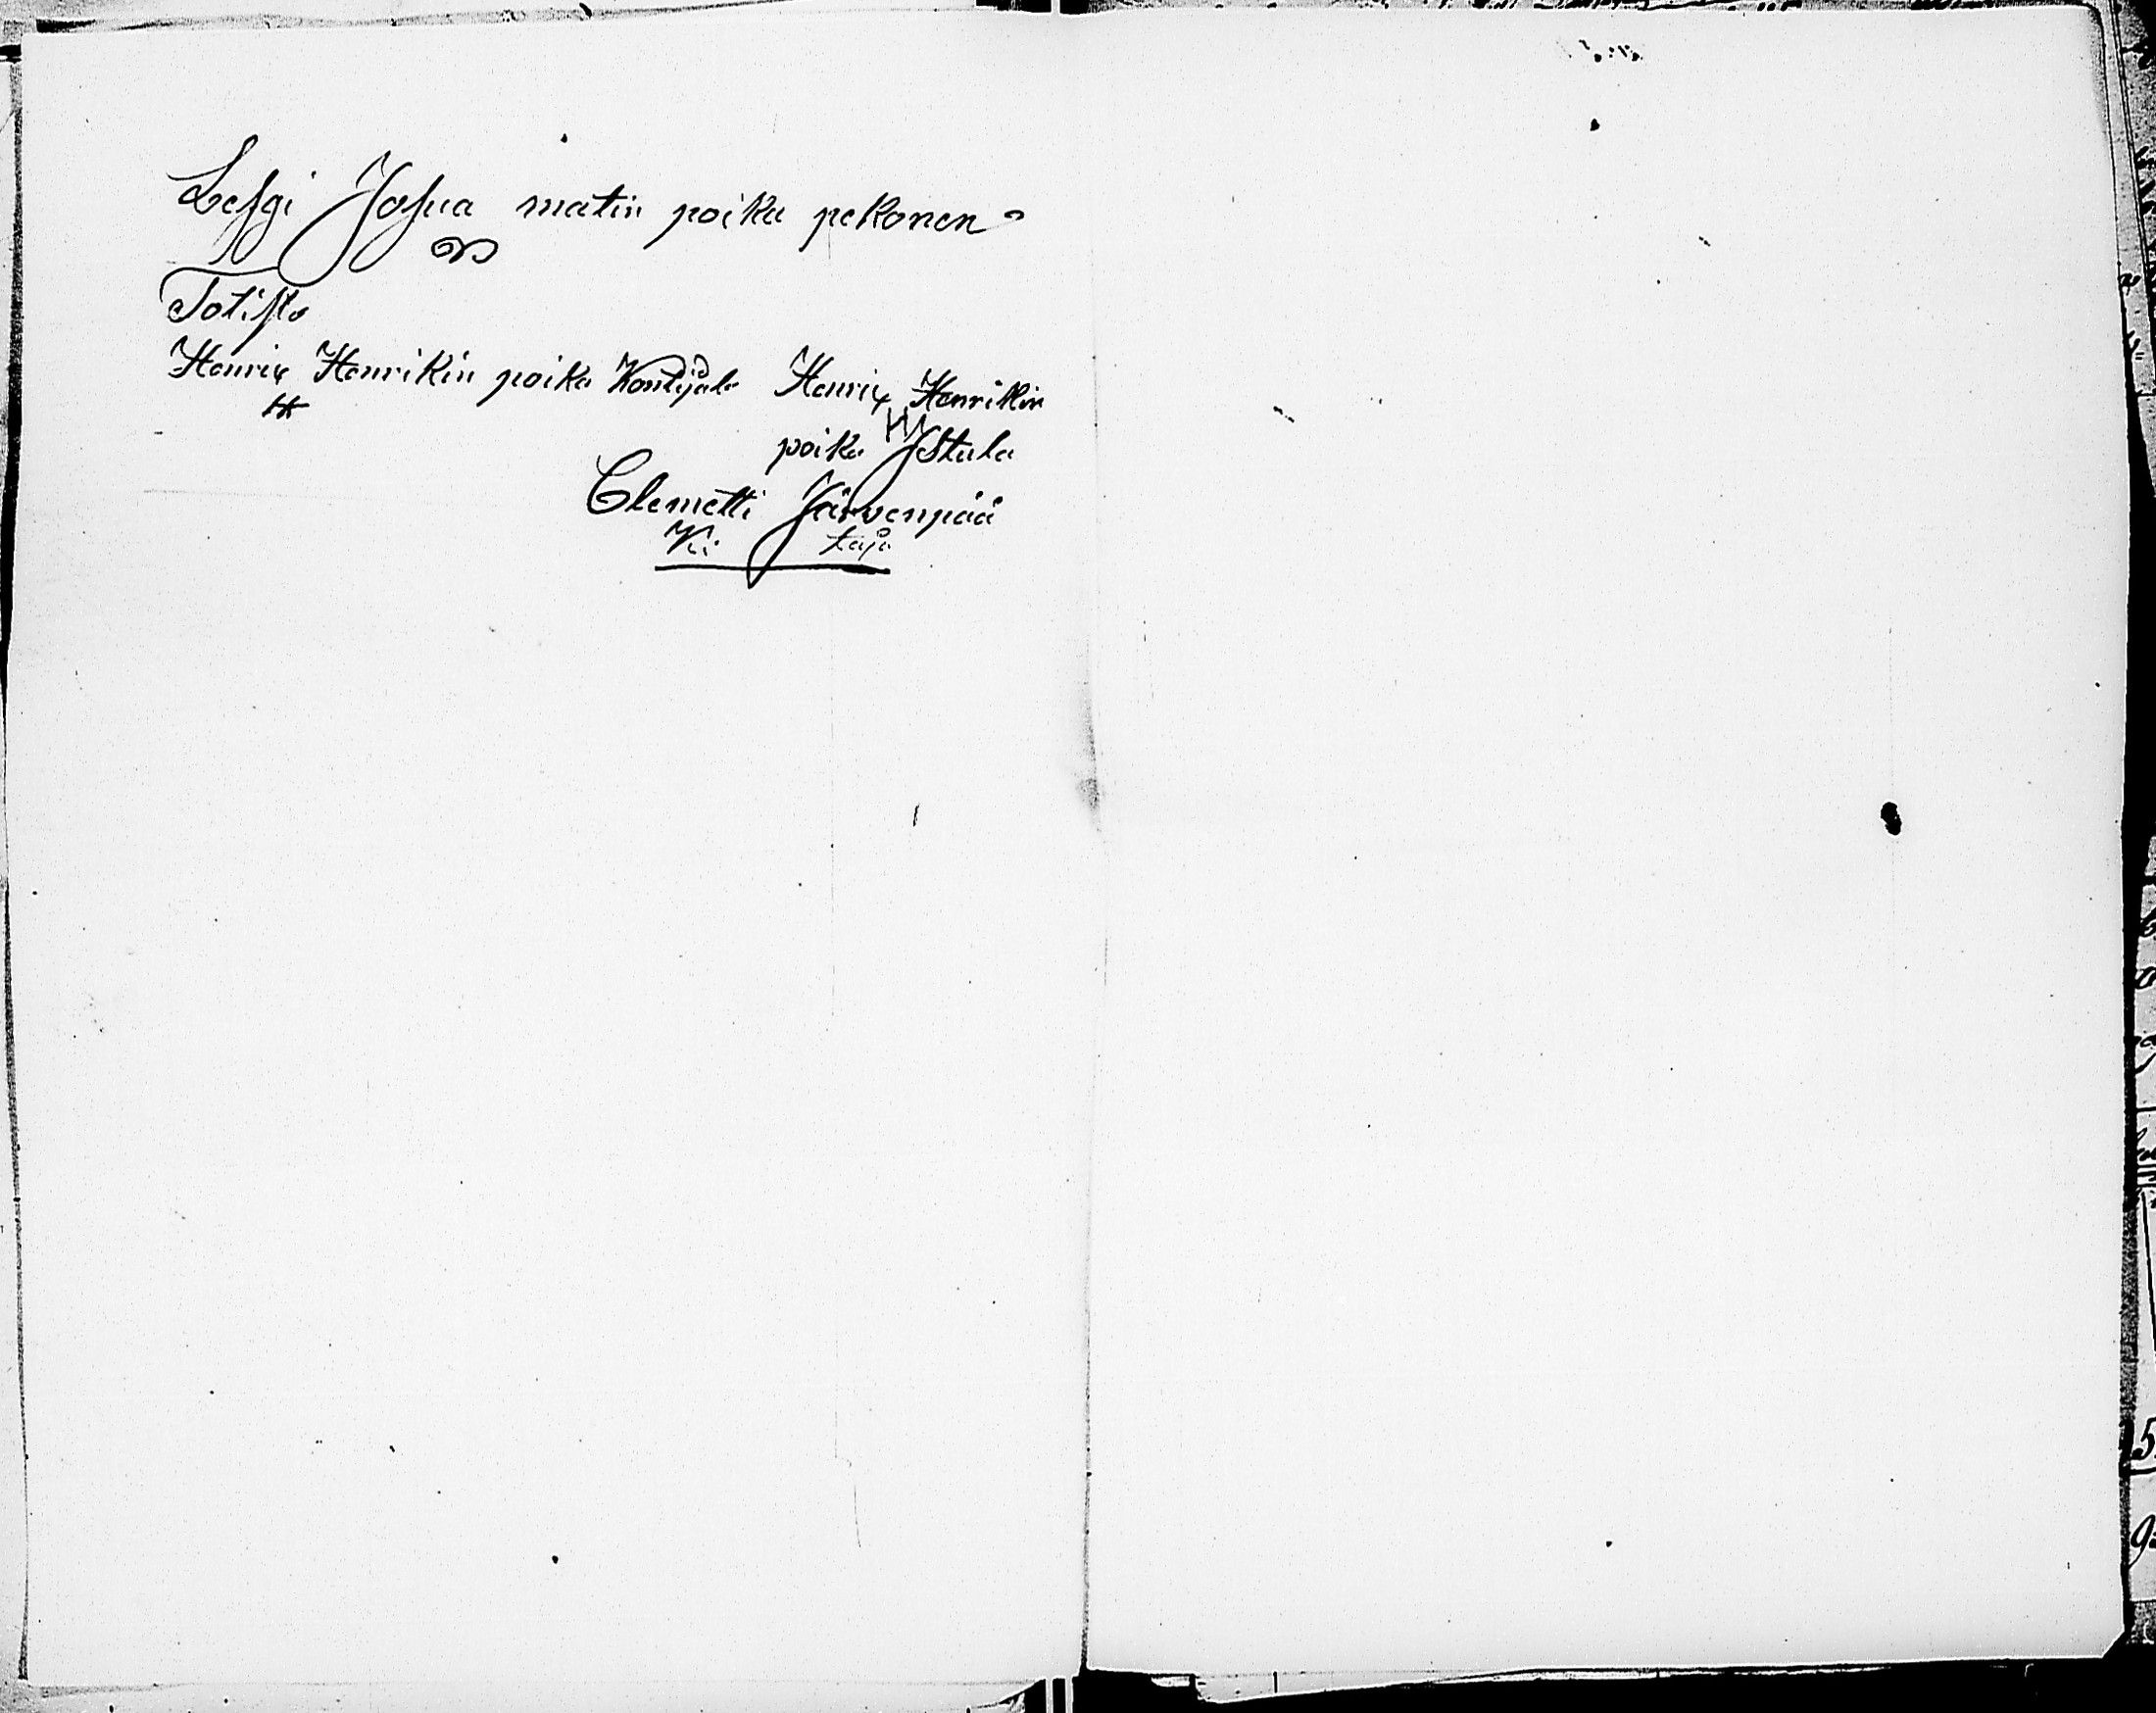 Lesgi Josua matin poika pekonen
Totista
Henrix Henrikin poika Kontijala Henrix Henrikin
HH
HH
poika JStala
Clemetti Järvenpää
Kii taja